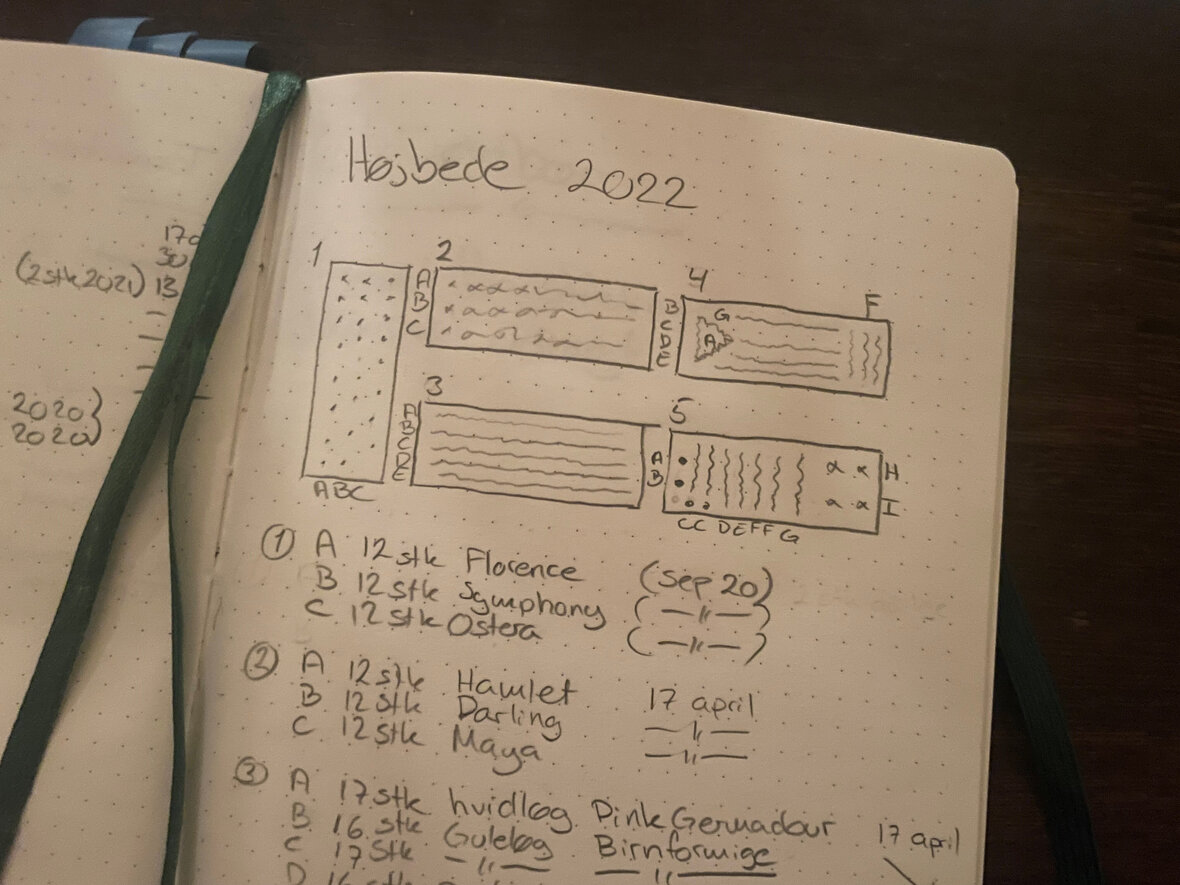 170
30
(2stk2021) 13
2020}
2020}
Højbede 2022
1
2
4
F
A
B
C
B
C
D
E
G
A
3
5
A
B
C
D
E
A
B
H
I
ABC
CC DEFF G
① A 12 stk Florence (Sep 20)
B 12 stk Symphony (—〃—)
C 12 stk Ostera (—〃—)
② A 12 stk Hamlet 17 april
B 12 stk Darling —〃—
C 12 stk Maya —〃—
③ A 17 stk hvidløg Pink Germadour 17 april
B 16 stk Guleløg Birnformige
C 17 stk —〃— —〃—
D 16 stk